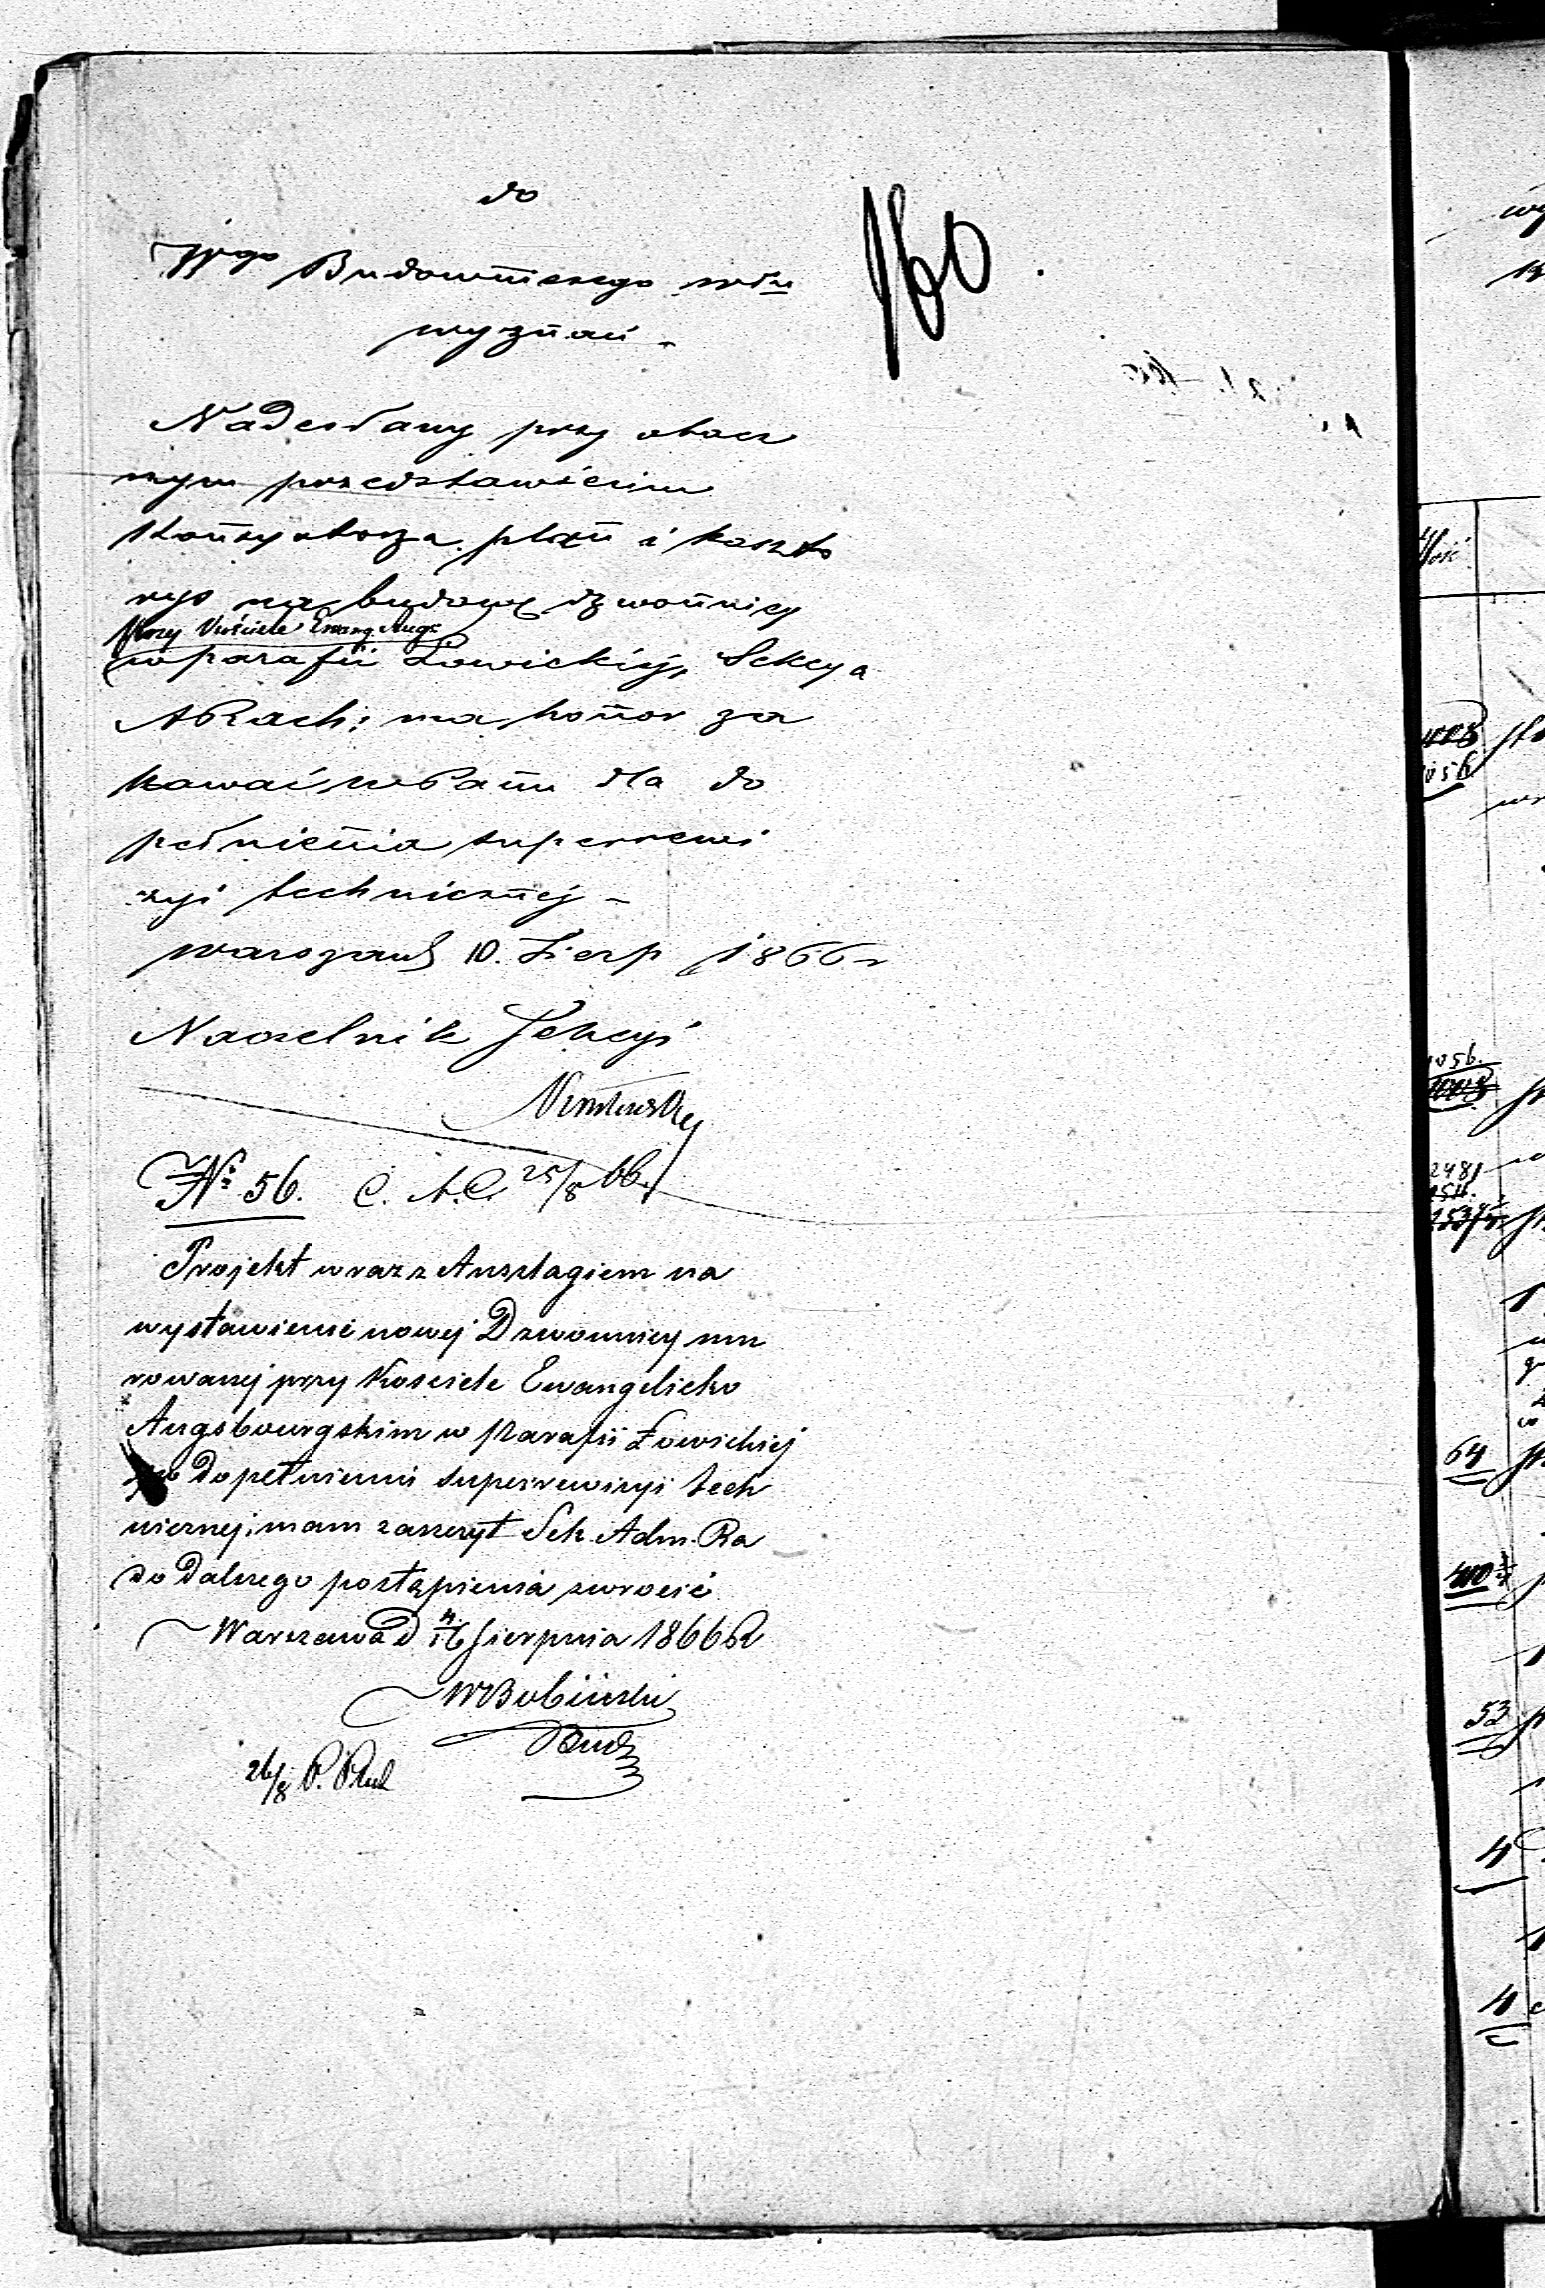 do
160
Budowniczego
wyznań -
Nadesłany przy obocz
nym przedstawieniu
Konsystorza plan i koszto
rys na budowę dzwonnicy
przy Kościele Ewang. Augs:
w parafii Łowickiej, Sekcya
ARach: ma honor za
kować WPanu dla do
pełnienia superrewi
zyi technicznej -
Warszawa 10. Sierp 1866 r
Naczelnik Sekcyi
№ 56. 25/8 66.
Projekt wraz z Anszlagiem na
wystawienie nowej Dzwonnicy mu
rowanej przy Kościele Ewangelicko
Augsbourgskim w Parafii Łowickiej
po dopełnieniu superrewizyi tech
nicznej; mam zaszczyt Sek. Adm. Ra
do dalszego postąpienia zwrócić
Warszawa d 4/16 Sierpnia 1866 R
WBobiński
Bud
26/8
Ilość
1056
1008
1056.
1008
2481
64
53
4
4